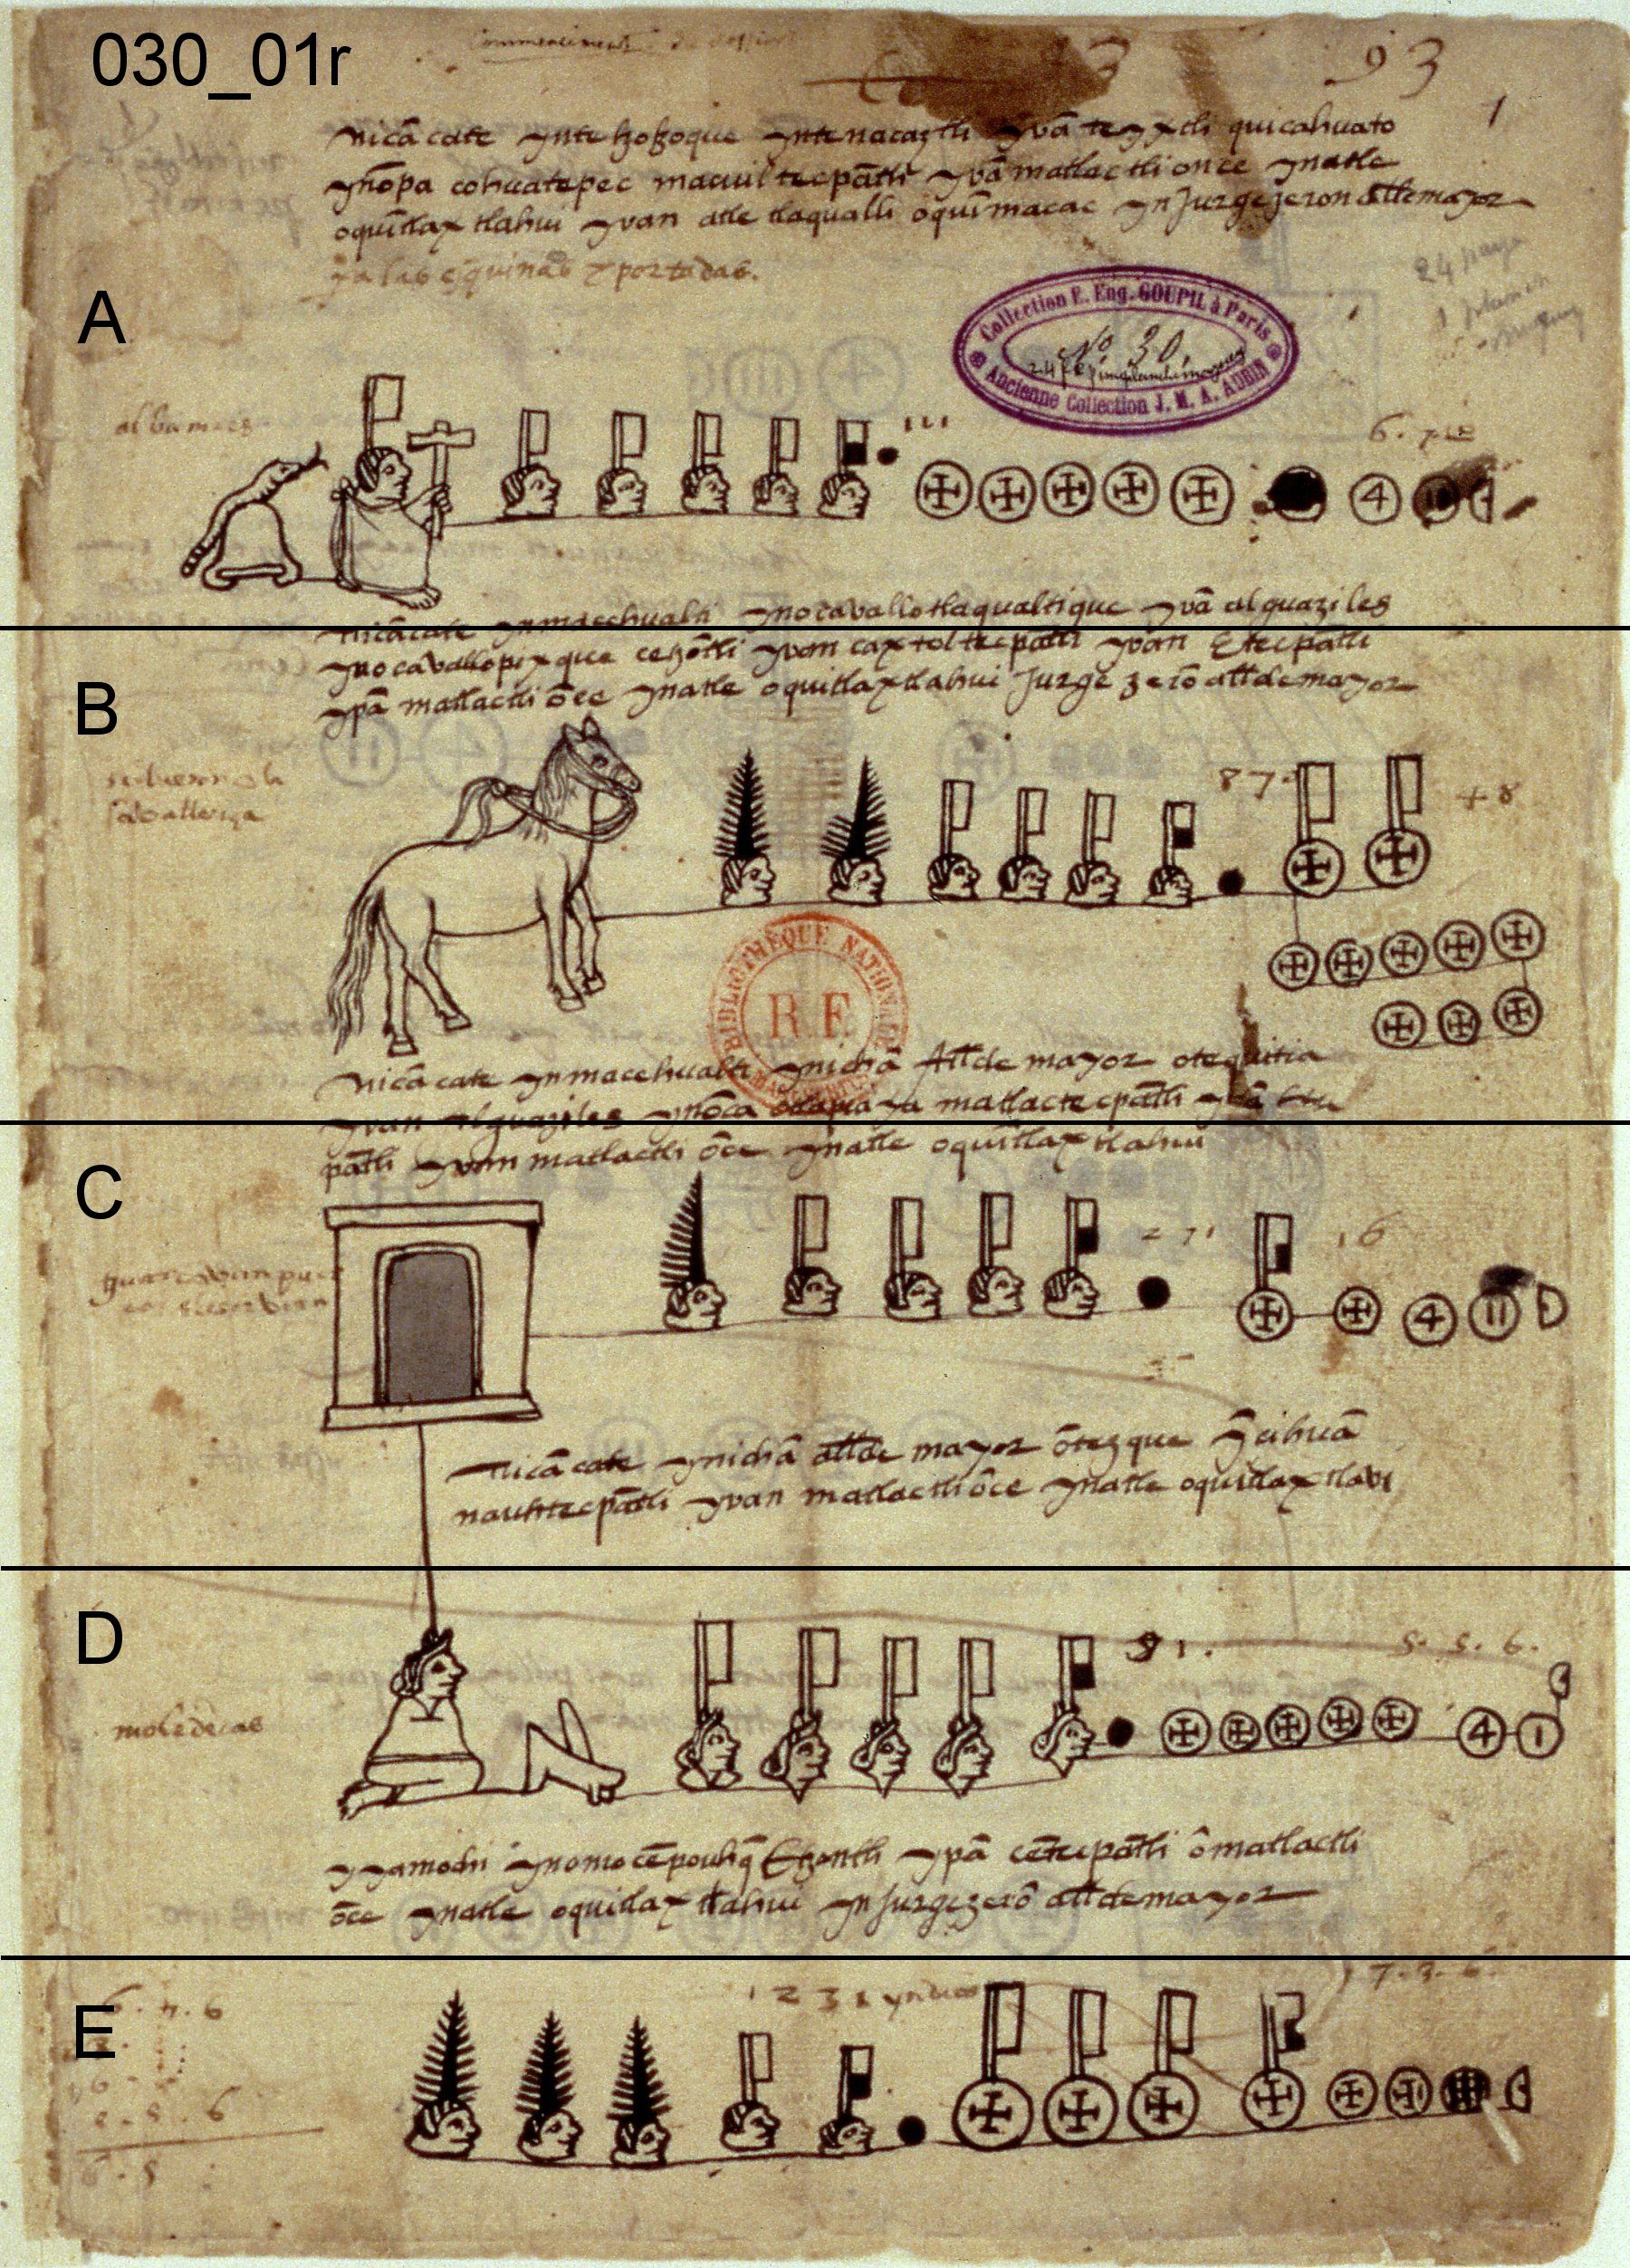 030_01r
93
1
nicā cate ynte tzotzoque yntenacaztli yvā teyxtli quicahuato
ynōpa cohuatepec macuiltecpātli yvā matlactli once ynatle
oquītlaxtlahui yvan atle tlaqualli oquīmacac yn Jurgejeron allemayor
ya las esquinas y portadas.
24 pag
A
Collection E. Eug. GOUPIL à Paris
No 30
Ancienne Collection J. M. A. AUBIN
4
nicācate ynmacehualti ynocavallotlaqualtique yvā alguaziles
ynocavallopixque cetzōtli yvan caxtoltecpātli yvan Etecpātli
ypā matlactli ōce ynatle oquitlaxtlahui Jurge zerō alldemayor
B
87
+8
BIBLIOTHÈQUE NATIONALE
R F
MANUSCRITS
nicā cate ynmacehualti ynichā Allde mayor otequitia
yvan alguaziles ynōca otlapiaya matlactecpātli yvā
pātli yvan matlactli ōce ynatle oquītlaxtlahui
C
271
16
4 11
nicā cate ynichā allde mayor ōtezque ȳcihuā
nauhtecpātli yvan matlactli ōce ynatle oquitlaxtlavi
D
91.
5. 5. 6.
molederas
4 1
yyamochi ynomocēpouhq̄ Etzontli ypā cētecpātli ōmatlactli
ōce ynatle oquitlaxtlahui yn Jurgezerō alldemayor
E
1231 yndios
7. 3. 6.